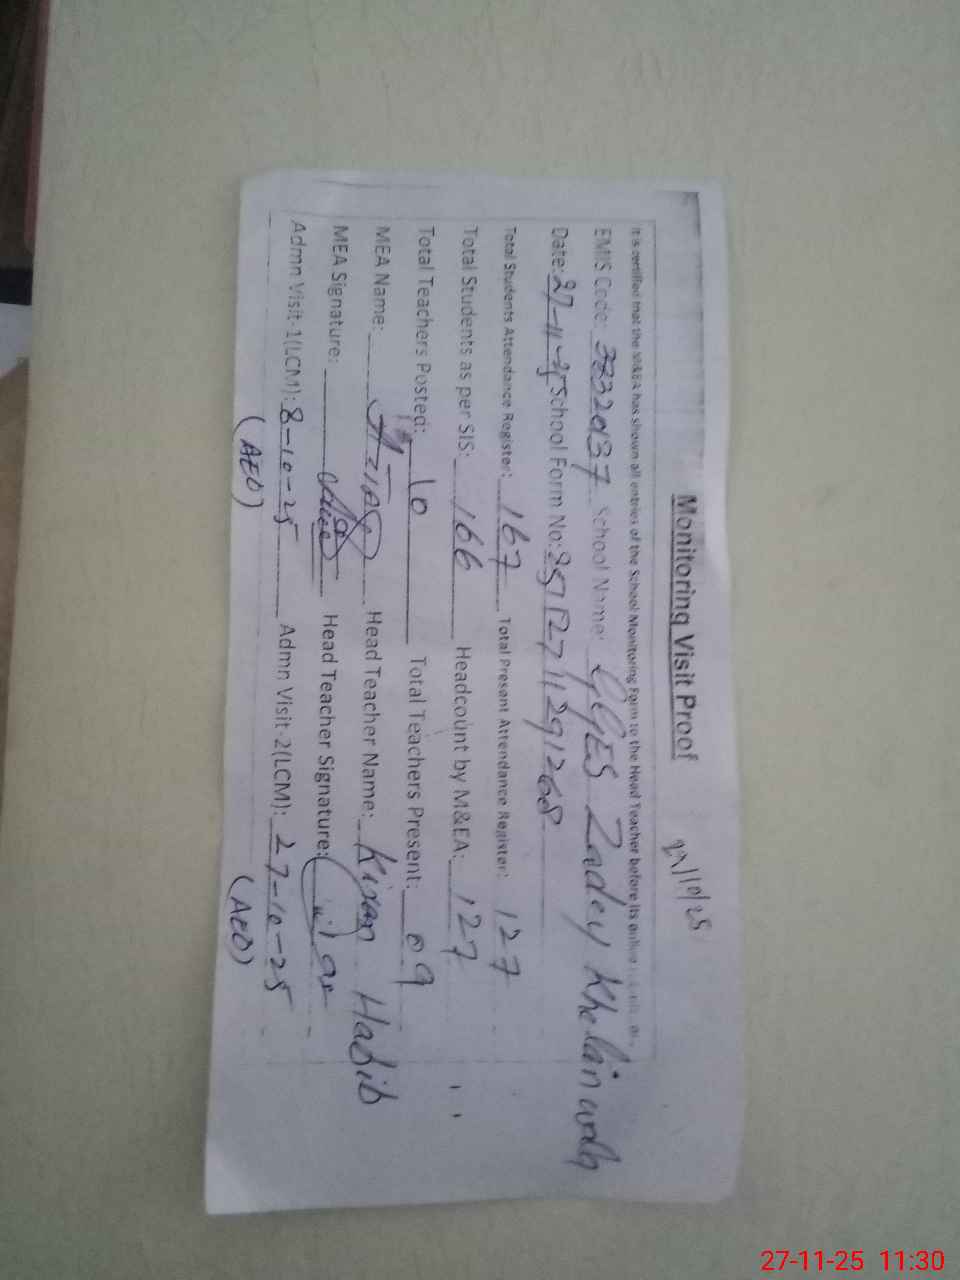 Monitoring Visit Proof
It is certified that the MEA has shown all entries of the School Monitoring Form to the Head Teacher before its online
EMIS Code: 38320137 School Name: GGES Zadey Khelan wala
Date: 27-11-25 School Form No:
Total Students Attendance Register: 167 Total Present Attendance Register: 127
Total Students as per SIS: 166 Headcount by M&EA: 127
Total Teachers Posted: 10 Total Teachers Present: 09
MEA Name: Head Teacher Name: Kiran Habib
MEA Signature: Head Teacher Signature:
Admn Visit-1(LCM): 8-10-25 Admn Visit-2(LCM): 27-10-25
(AEO) (AEO)
27-11-25 11:30